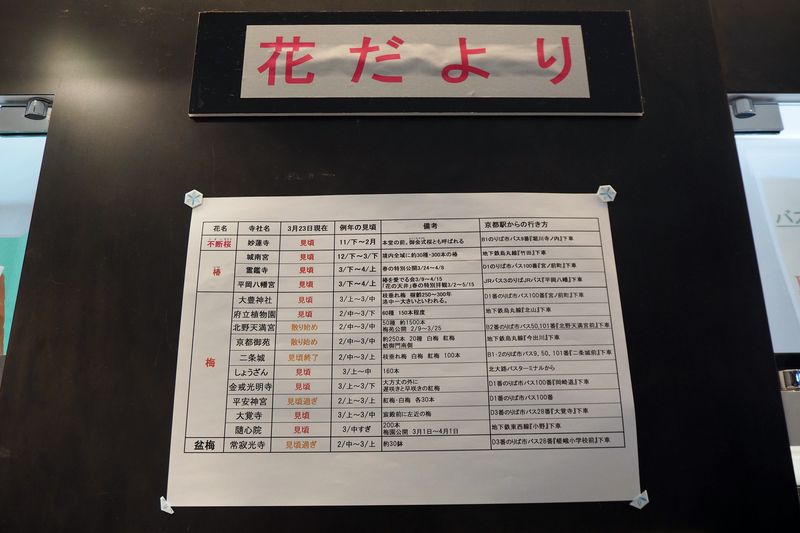 花だより
花名 寺社名 3月23日現在 例年の見頃 備考 京都駅からの行き方
不断桜 妙蓮寺 見頃 11/下～2月 本堂の前。御会式桜とも呼ばれる B1のりば市バス9番『堀川寺ノ内』下車
椿 城南宮 見頃 12/下～3/下 境内全域に約30種・300本の椿 地下鉄烏丸線『竹田』下車
霊鑑寺 見頃 3/下～4/上 春の特別公開3/24～4/8 D1のりば市バス100番『宮ノ前町』下車
平岡八幡宮 見頃 3/下～4/上 椿を愛でる会3/9～4/15
「花の天井」春の特別拝観3/2～5/15 JRバス3のりばJRバス『平岡八幡』下車
梅 大豊神社 見頃 3/上～3/中 枝垂れ梅 樹齢250～300年
洛中一大きいといわれる。 D1番のりば市バス100番『宮ノ前町』下車
府立植物園 見頃 2/中～3/下 60種 150本程度 地下鉄烏丸線『北山』下車
北野天満宮 散り始め 2/中～3/下 50種 約1500本
梅苑公開 2/9～3/25 B2番のりば市バス50,101番『北野天満宮前』下車
京都御苑 散り始め 2/中～3/中 約250本 20種 白梅 紅梅
蛤御門南側 地下鉄烏丸線『今出川』下車
二条城 見頃終了 2/中～3/上 枝垂れ梅 白梅 紅梅 100本 B1・2のりば市バス9, 50, 101番『二条城前』下車
しょうざん 見頃 3/上～中 160本 北大路バスターミナルから
金戒光明寺 見頃 3/上～3/下 大方丈の外に
遅咲きと早咲きの紅梅 D1番のりば市バス100番『岡崎道』下車
平安神宮 見頃過ぎ 2/上～3/上 紅梅・白梅 各30本 D1番のりば市バス100番
大覚寺 見頃 3/上～3/中 宸殿前に左近の梅 D3番のりば市バス28番『大覚寺』下車
随心院 見頃 3/中すぎ 200本
梅園公開 3月1日～4月1日 地下鉄東西線『小野』下車
盆梅 常寂光寺 見頃過ぎ 2/中～3/上 約30鉢 D3番のりば市バス28番『嵯峨小学校前』下車
バス